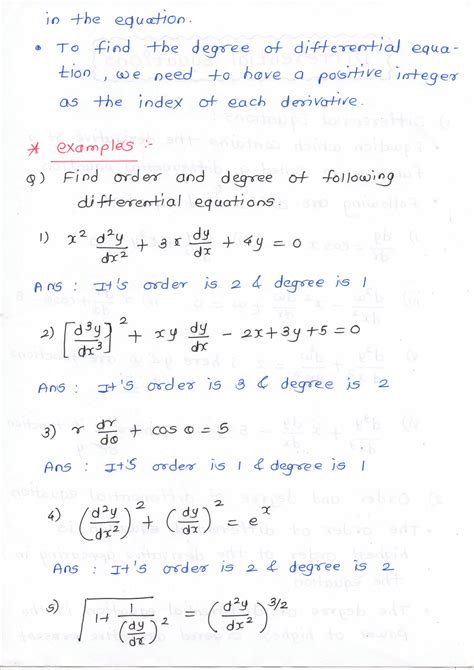 in the equation.
• To find the degree of differential equa-
tion, we need to have a positive integer
as the index of each derivative.
* examples :-
Q) Find order and degree of following
differential equations.
1) x² d²y/dx² + 3x dy/dx + 4y = 0
Ans : It's order is 2 & degree is 1
2) [d³y/dx³]² + xy dy/dx - 2x+3y+5=0
Ans : It's order is 3 & degree is 2
3) r dr/dθ + cos θ = 5
Ans : It's order is 1 & degree is 1
4) (d²y/dx²)² + (dy/dx)² = eˣ
Ans : It's order is 2 & degree is 2
5) √(1+ 1/(dy/dx)²) = (d²y/dx²)^3/2